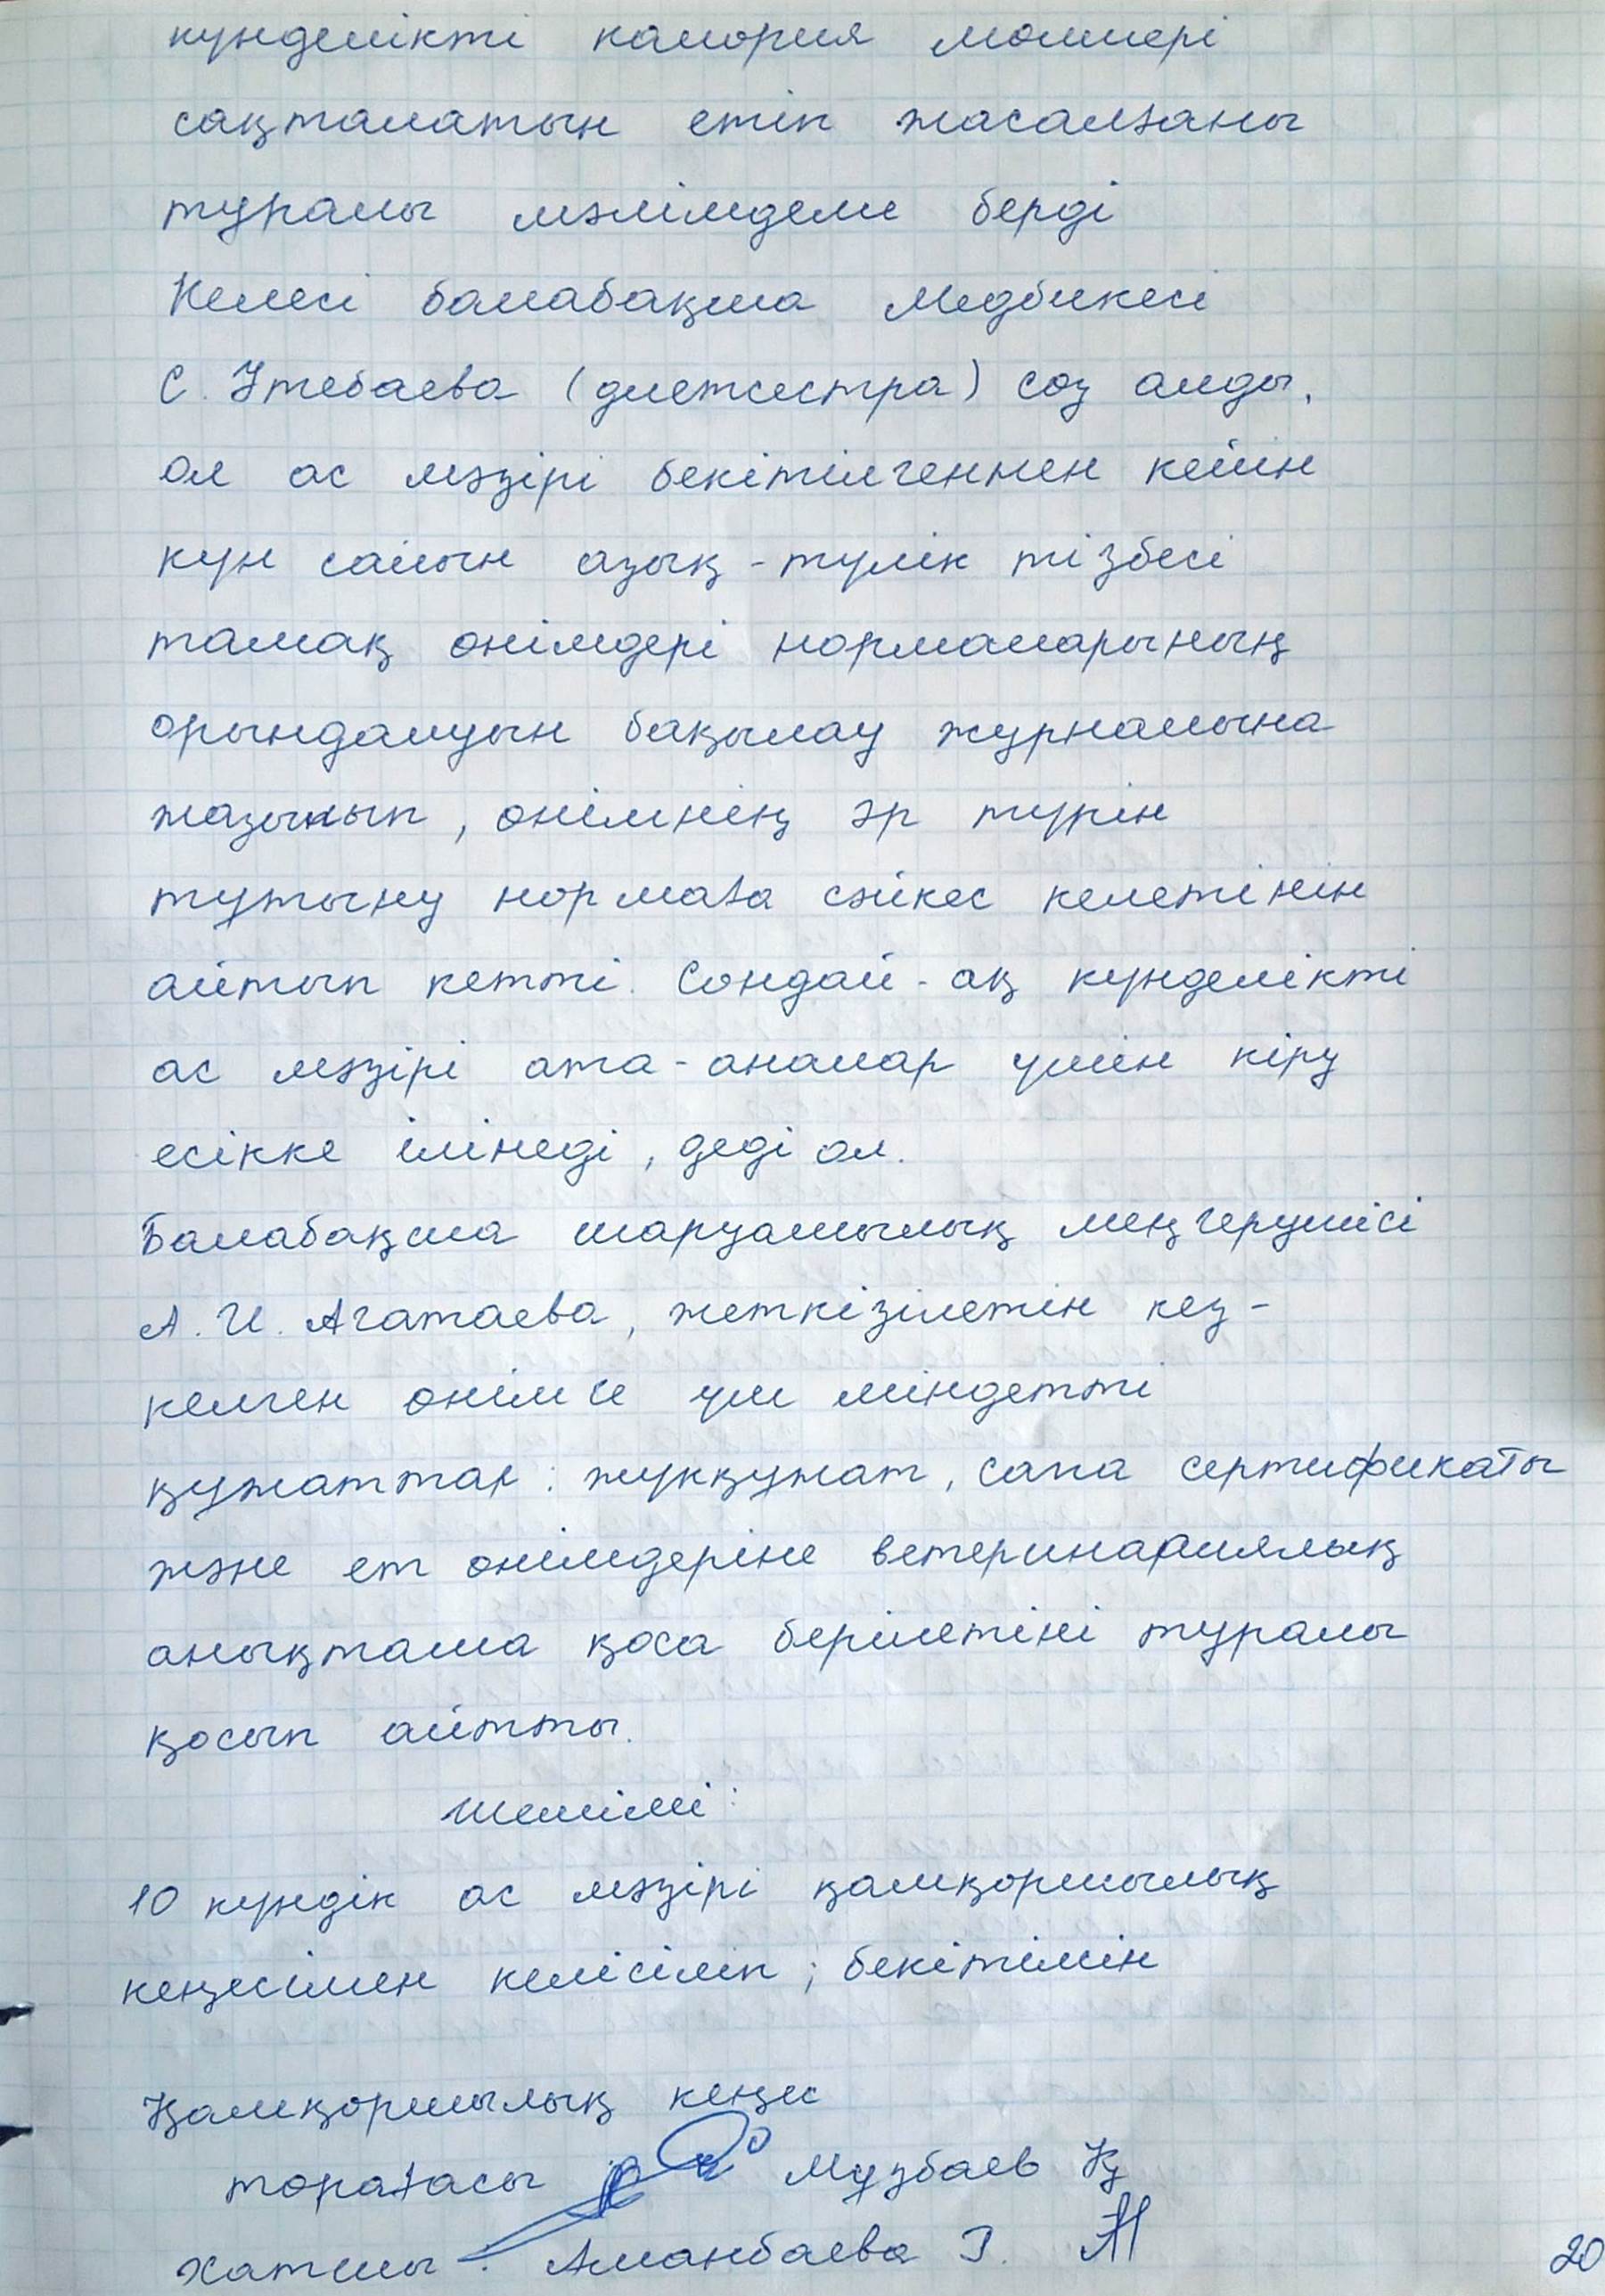 күнделікті калория мөлшері
сақталатын етіп жасалғаны
туралы мәлімдеме берді
Келесі балабақша медбикесі
С. Утебаева (диетсестра) сөз алды,
ол ас мәзірі бекітілгеннен кейін
күн сайын азық-түлік тізбесі
тамақ өнімдері нормаларының
орындалуын бақылау журналына
жазылып, өнімнің әр түрін
тұтыну нормаға сәйкес келетінін
айтып кетті. Сондай-ақ күнделікті
ас мәзірі ата-аналар үшін кіру
есікке ілінеді, деді ол.
Балабақша шаруашылық меңгерушісі
А. И. Агатаева, жеткізілетін кез-
келген өнімге үш міндетті
құжаттар: жүкқұжат, сапа сертификаты
және ет өнімдеріне ветеринариялық
анықтама қоса берілетіні туралы
қосып айтты.
Шешімі:
10 күндік ас мәзірі қамқоршылық
кеңесімен келісіліп; бекітілсін
Қамқоршылық кеңес
төрағасы Музбаев Қ
Хатшы: Аманбаева З.
20